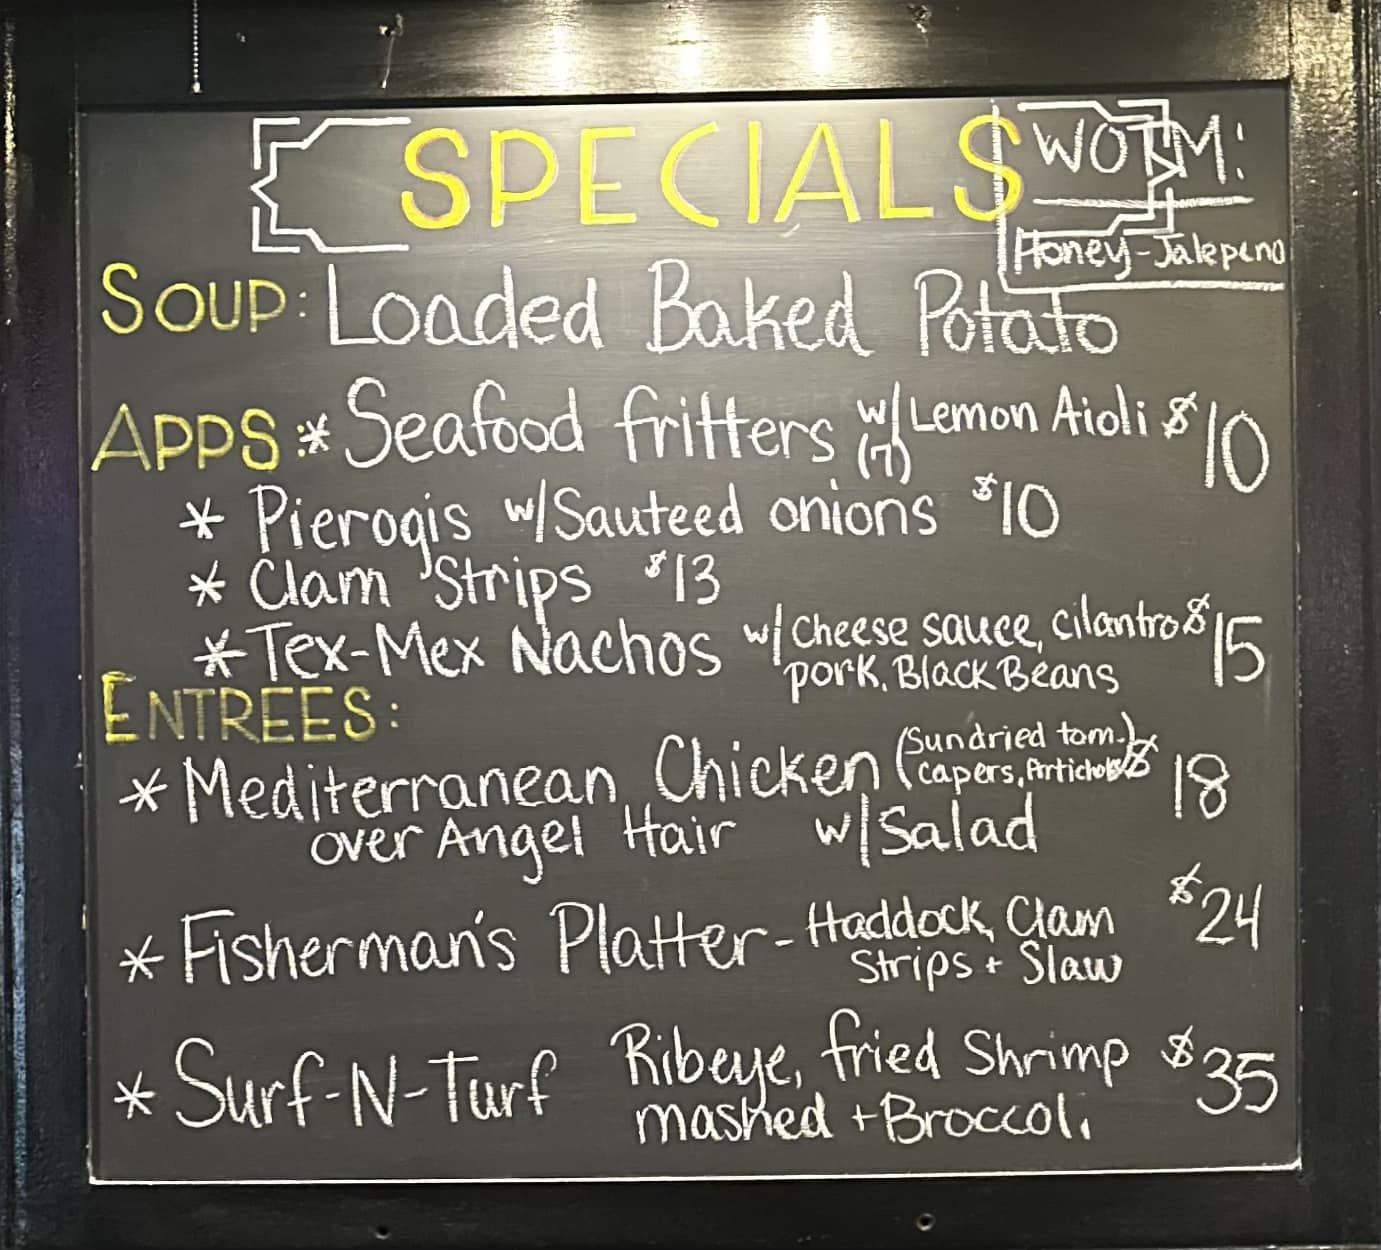 SPECIALS
WOTM:
Honey-Jalepeno
SOUP: Loaded Baked Potato
APPS: * Seafood fritters w/ Lemon Aioli $10
(7)
* Pierogis w/ Sauteed onions $10
* Clam Strips $13
* Tex-Mex Nachos w/ Cheese sauce, cilantro $15
pork, Black Beans
ENTREES:
* Mediterranean Chicken (Sundried tom. $18
capers, Artichoks)
over Angel Hair w/ Salad
* Fisherman's Platter - Haddock, Clam $24
Strips + Slaw
* Surf-N-Turf Ribeye, fried Shrimp $35
mashed + Broccoli